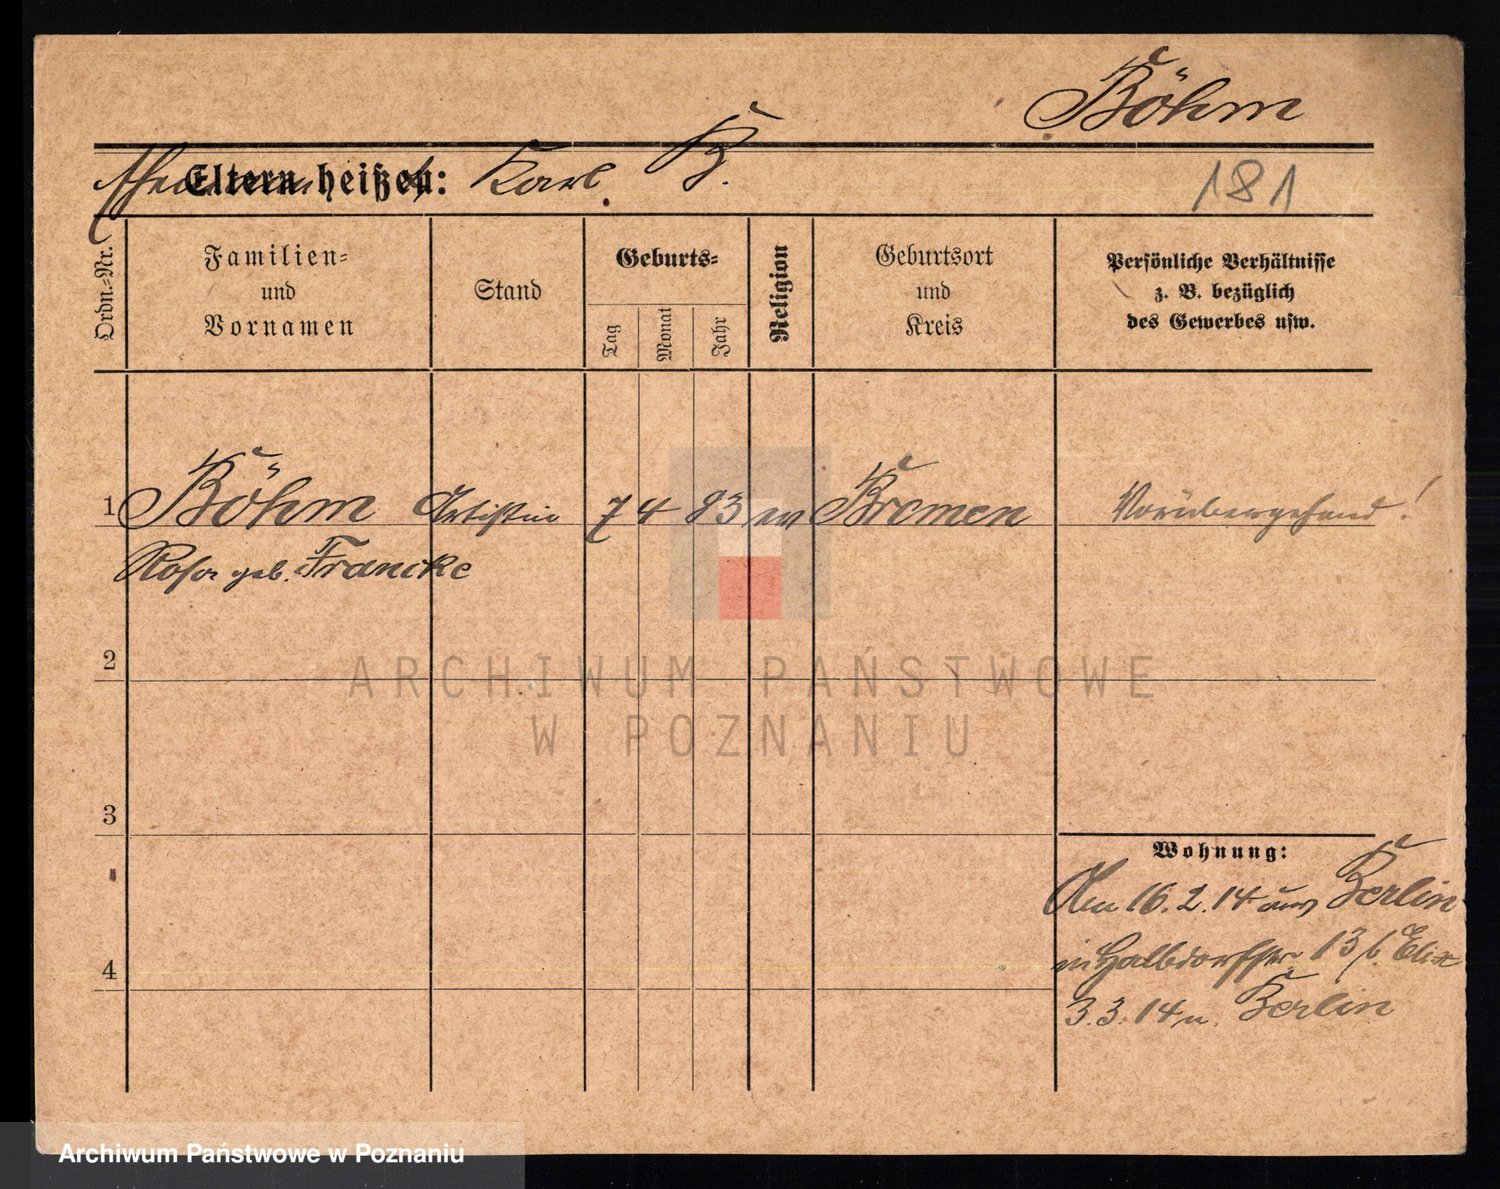 Böhm
Eltern heißen: Karl B.
181
Ordn.-Nr.
Familien-
und
Vornamen
Stand
Geburts-
Tag
Monat
Jahr
Religion
Geburtsort
und
Kreis
Persönliche Verhältnisse
z. B. bezüglich
des Gewerbes usw.
1 Böhm Artistin 7 4 83 ev Bremen Vorübergehend!
Rosa geb. Francke
2
ARCHIWUM PAŃSTWOWE
W POZNANIU
3
Wohnung:
Am 16.2.14 aus Berlin
in Halbdorfstr. 13 b.
4
3.3.14 n. Berlin
Archiwum Państwowe w Poznaniu